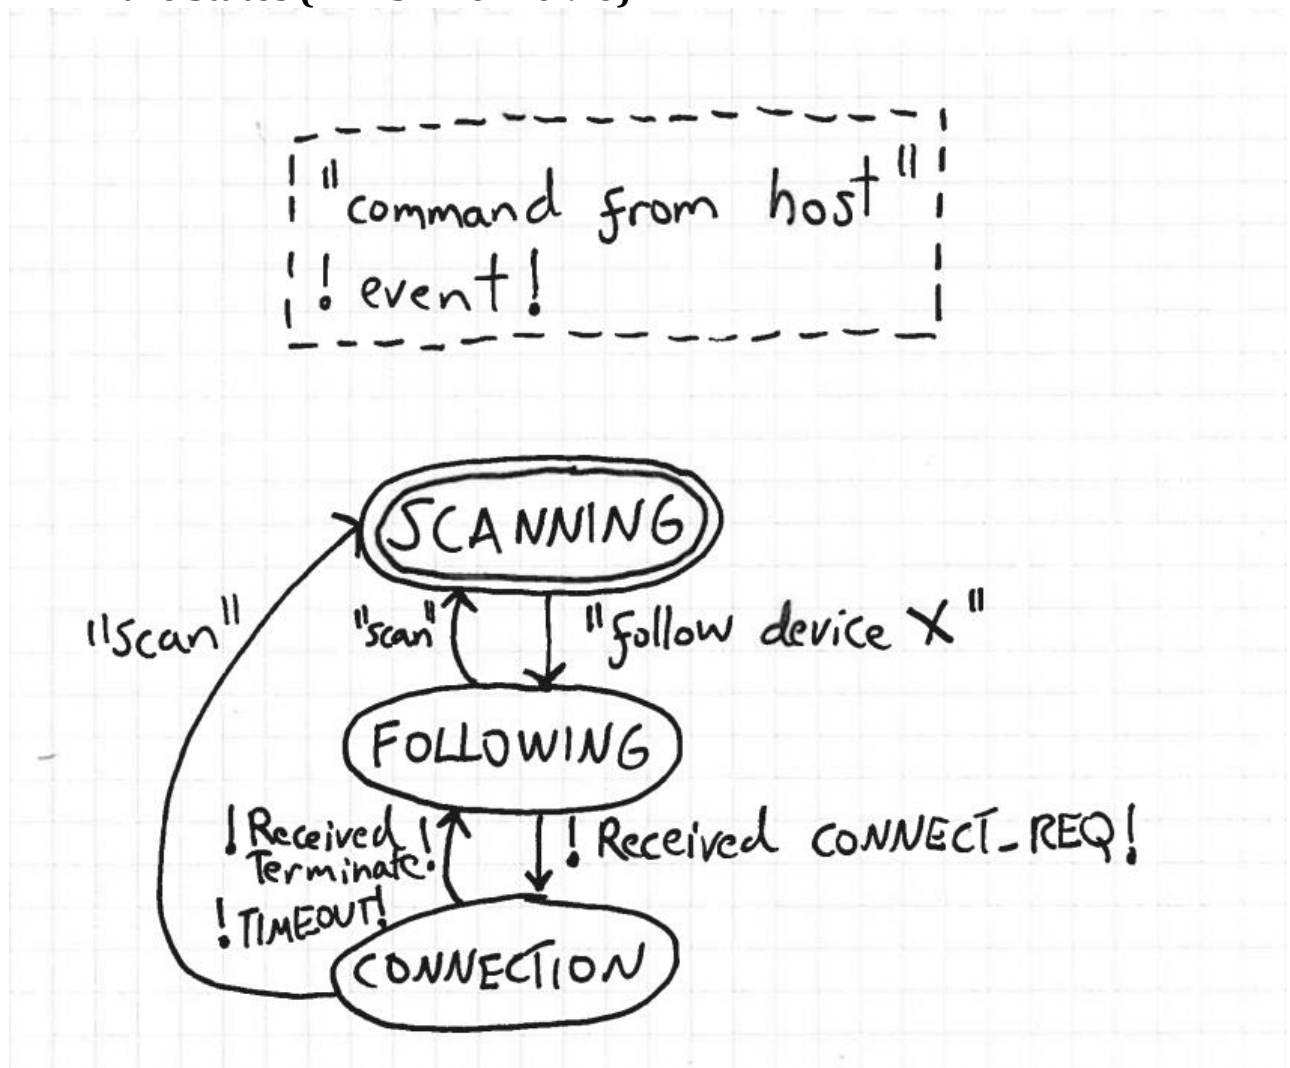 "command from host"
! event !
SCANNING
"scan"
"scan"
"follow device X"
FOLLOWING
! Received
Terminate!
! Received CONNECT_REQ!
! TIMEOUT!
CONNECTION